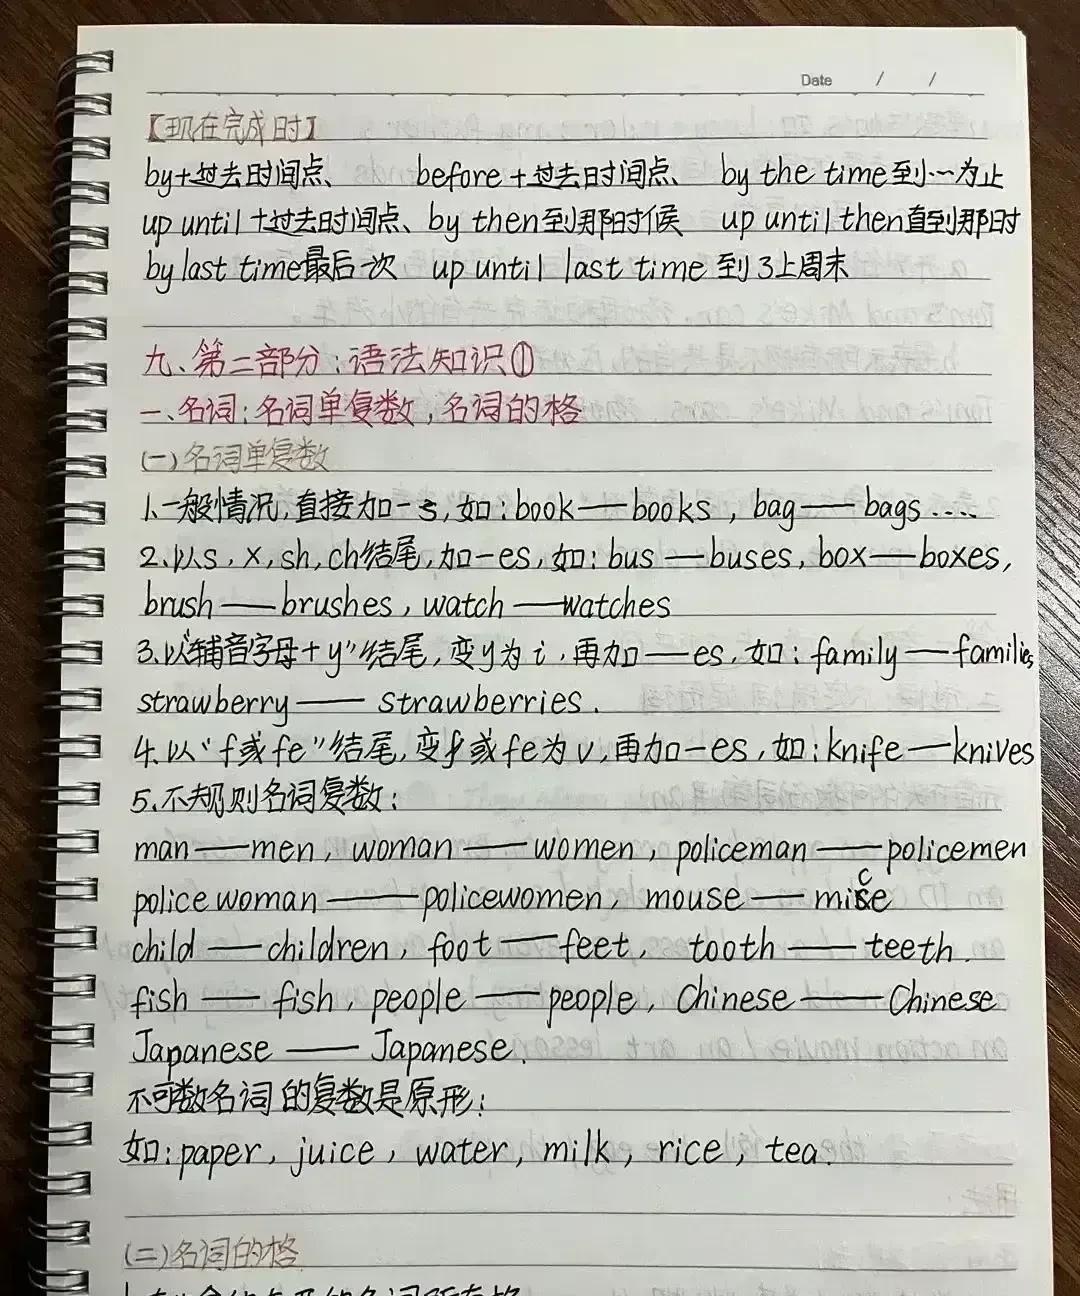 Date / /
【现在完成时】
by+过去时间点、 before+过去时间点、 by the time到…为止
up until+过去时间点、by then到那时候 up until then直到那时
by last time最后一次 up until last time 到了上周末
九、第二部分:语法知识①
一、名词:名词单复数,名词的格
(一)名词单复数
1.一般情况,直接加-s,如:book——books, bag——bags....
2.以s,x,sh,ch结尾,加-es,如:bus——buses,box——boxes,
brush——brushes,watch——watches
3.以“辅音字母+y”结尾,变y为i,再加——es,如:family——families
strawberry——strawberries.
4.以“f或fe”结尾,变f或fe为v,再加-es,如:knife——knives
5.不规则名词复数:
man——men, woman——women, policeman——policemen
police woman——policewomen, mouse——mice
child——children, foot——feet, tooth——teeth.
fish——fish, people——people, Chinese——Chinese
Japanese——Japanese.
不可数名词的复数是原形:
如:paper, juice, water, milk, rice, tea.
(二)名词的格